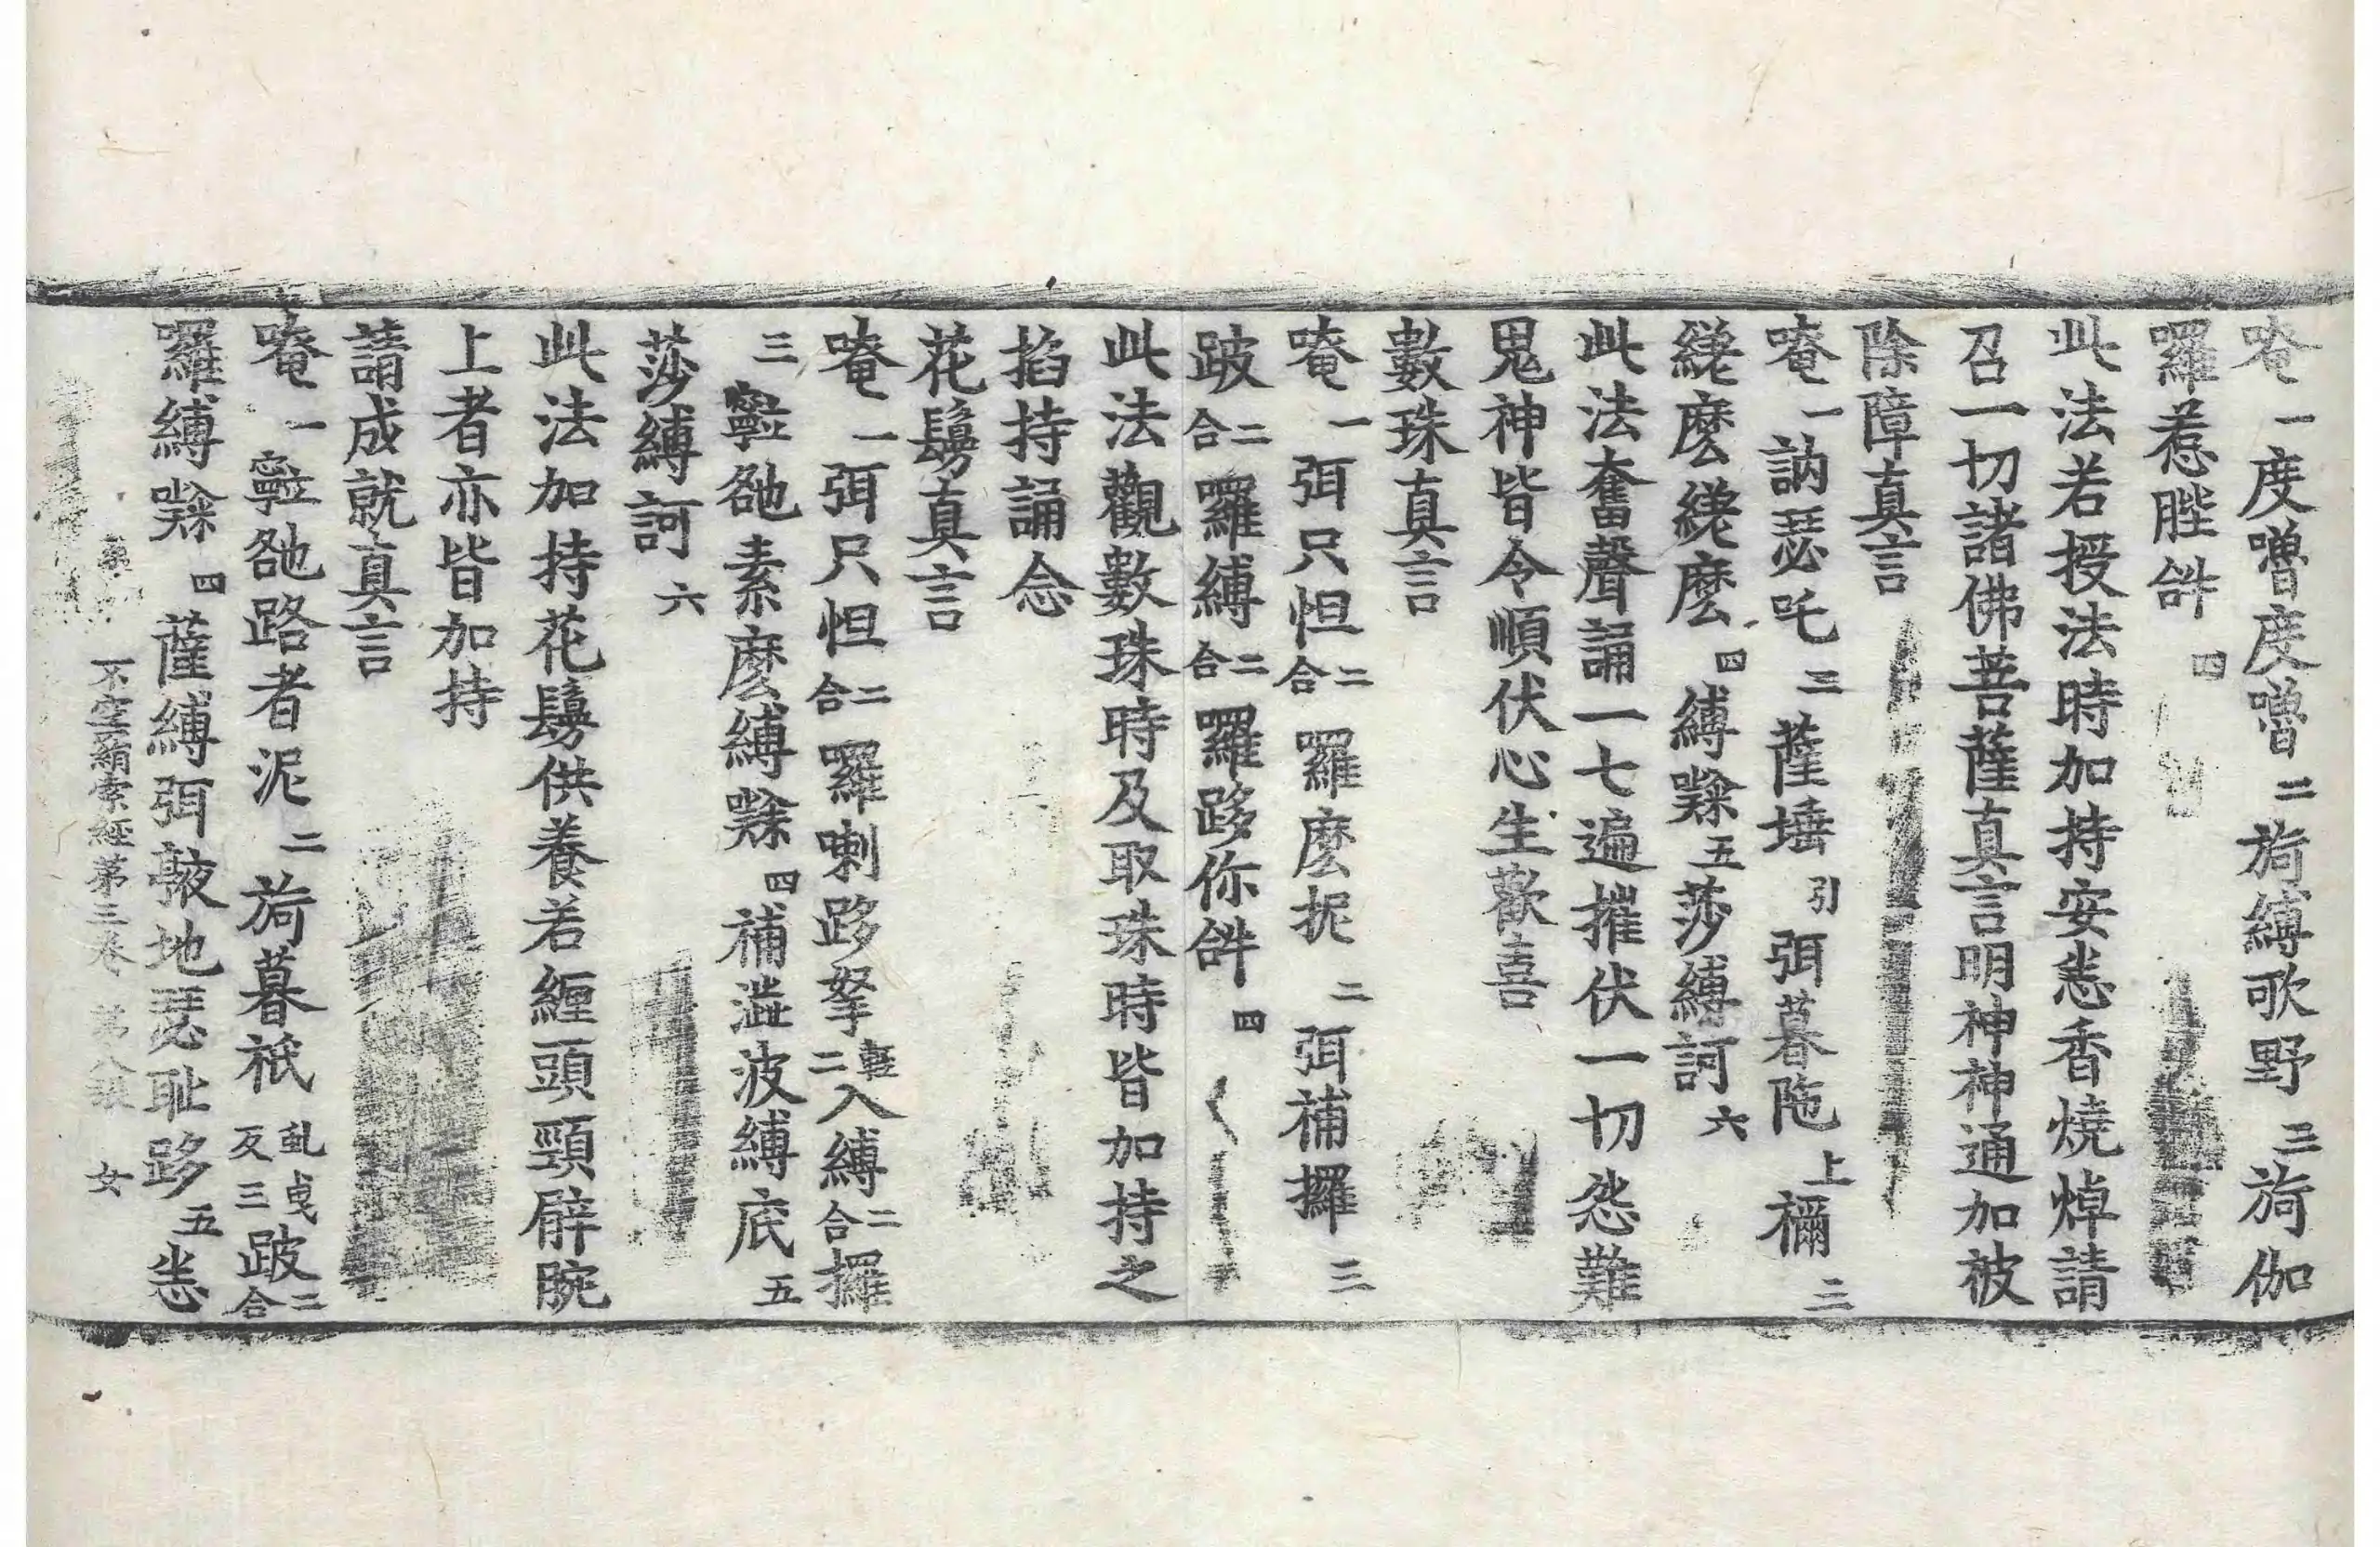 唵一度嚕度嚕二旖縛歌野三旖伽
囉惹陛𤙖四
此法若授法時加持安悉香燒焯請
召一切諸佛菩薩真言明神神通加被
除障真言
唵一訥瑟吒二薩埵引弭暮陁上禰三
繼麽繼麽四縛㘑五莎縛訶六
此法奮聲誦一七遍摧伏一切怨難
鬼神皆令順伏心生歡喜
數珠真言
唵一弭只怛二合囉麽抳二弭補攞三
跛二合囉縛二合囉跢你𤙖四
此法觀數珠時及取珠時皆加持之
掐持誦念
花鬘真言
唵一弭只怛二合囉喇跢拏輕二入縛二合攞
三㘕鉇素麽縛㘑四補澁波縛底五
莎縛訶六
此法加持花鬘供養若纏頭頸臂腕
上者亦皆加持
請成就真言
唵一㘕鉇路者泥二旖暮祇亂曳反三跛二合
囉縛㘑四薩縛弭𩕳地瑟耻跢五悉
不空羂索經第三卷 第八張 女